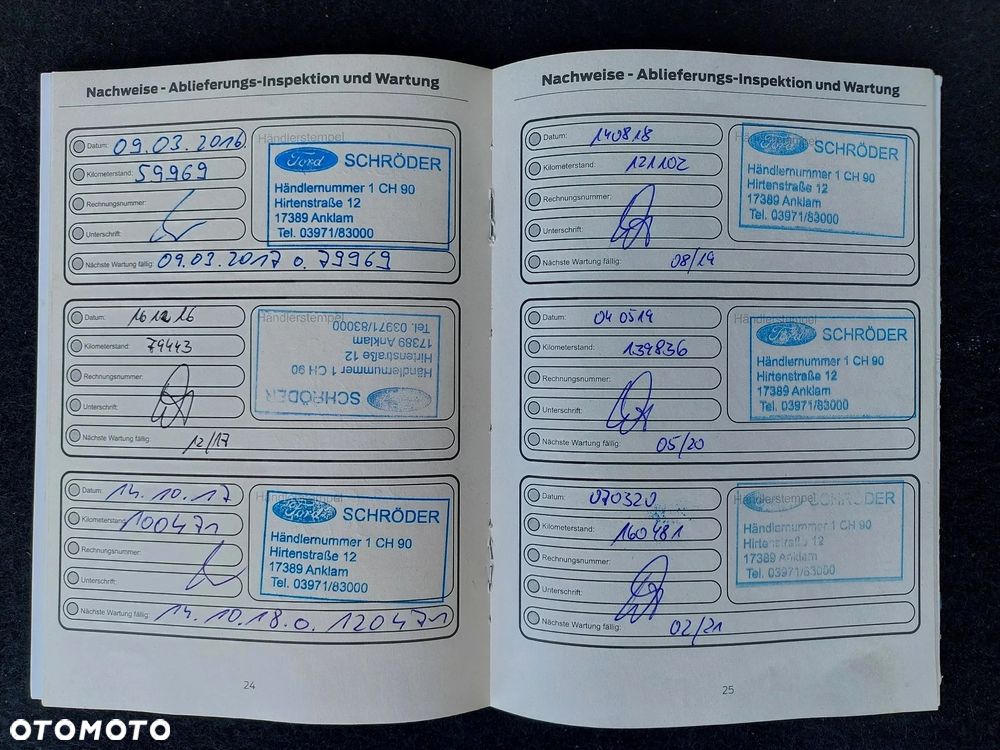 Nachweise - Ablieferungs-Inspektion und Wartung
Datum: 09.03.2016
Händlerstempel
Kilometerstand: 59969
Rechnungsnummer:
Unterschrift:
Ford SCHRÖDER
Händlernummer 1 CH 90
Hirtenstraße 12
17389 Anklam
Tel. 03971/83000
Nächste Wartung fällig: 09.03.2017 o. 79969
Datum: 161216
Händlerstempel
Kilometerstand: 79443
Rechnungsnummer:
Unterschrift:
SCHRÖDER
Händlernummer 1 CH 90
Hirtenstraße 12
17389 Anklam
Tel. 03971/83000
Nächste Wartung fällig: 12/17
Datum: 14.10.17
Händlerstempel
Kilometerstand: 100471
Rechnungsnummer:
Unterschrift:
Ford SCHRÖDER
Händlernummer 1 CH 90
Hirtenstraße 12
17389 Anklam
Tel. 03971/83000
Nächste Wartung fällig: 14.10.18 o. 120471
24
Nachweise - Ablieferungs-Inspektion und Wartung
Datum: 140818
Händlerstempel
Kilometerstand: 121102
Rechnungsnummer:
Unterschrift:
Ford SCHRÖDER
Händlernummer 1 CH 90
Hirtenstraße 12
17389 Anklam
Tel. 03971/83000
Nächste Wartung fällig: 08/19
Datum: 040519
Händlerstempel
Kilometerstand: 139836
Rechnungsnummer:
Unterschrift:
Ford SCHRÖDER
Händlernummer 1 CH 90
Hirtenstraße 12
17389 Anklam
Tel. 03971/83000
Nächste Wartung fällig: 05/20
Datum: 070320
Händlerstempel
Kilometerstand: 160481
Rechnungsnummer:
Unterschrift:
SCHRÖDER
Händlernummer 1 CH 90
Hirtenstraße 12
17389 Anklam
Tel. 03971/83000
Nächste Wartung fällig: 02/21
25
OTOMOTO